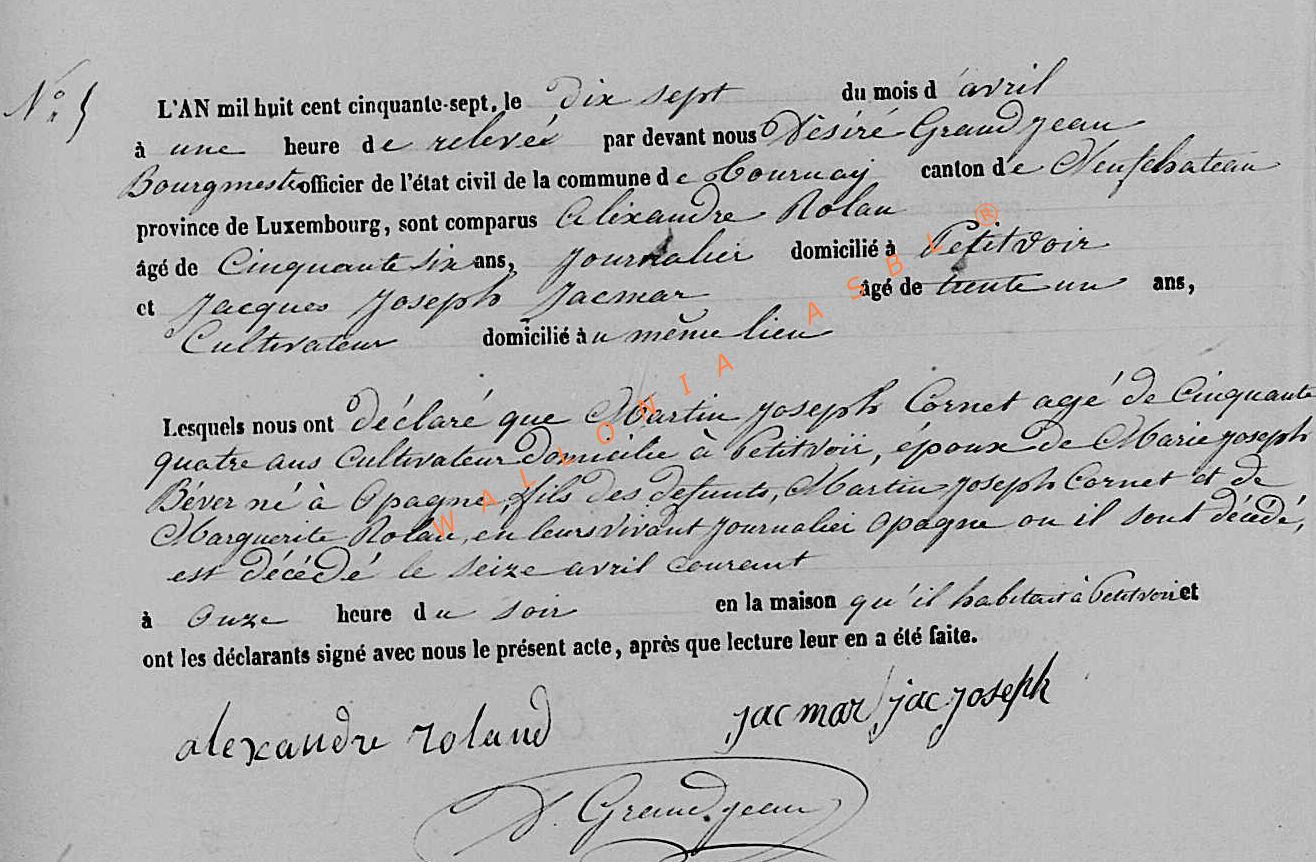 N° 5
L'AN mil huit cent cinquante-sept, le dix sept du mois d'avril
à une heure de relevée par devant nous Désiré Grandjean
Bourgmestre officier de l'état civil de la commune de Tournay canton de Neufchateau
province de Luxembourg, sont comparus Alexandre Rolan
âgé de Cinquante six ans, Journalier domicilié à Petitvoir
et Jacques Joseph Jacmar âgé de trente un ans,
Cultivateur domicilié àu même lieu
Lesquels nous ont déclaré que Martin Joseph Cornet agé de Cinquante
quatre ans Cultivateur domicilié à Petitvoir, époux de Marie Joseph
Béver né à Opagne, fils des defunts, Martin Joseph Cornet et de
Marguerite Rolan, en leurs vivant Journalier Opagne ou il sont décédé,
est décédé le seize avril courant
à Onze heure du soir en la maison qu'il habitait à Petitvoir et
ont les déclarants signé avec nous le présent acte, après que lecture leur en a été faite.
alexandre roland jacmar jac joseph
D. Grandjean
WALLONIA ASBL ®